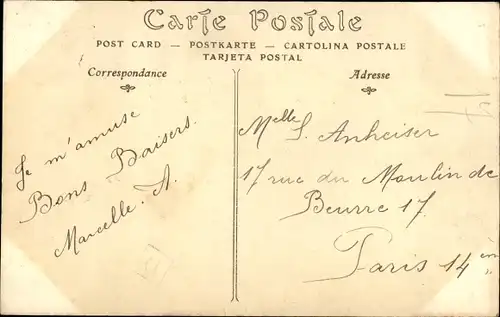 Carte Postale
POST CARD — POSTKARTE — CARTOLINA POSTALE
TARJETA POSTAL
Correspondance
Adresse
Je m'amuse
Bons Baisers.
Marcelle. A.
Melle S. Anheiser
17 rue du Moulin de
Beurre 17.
Paris 14 èm